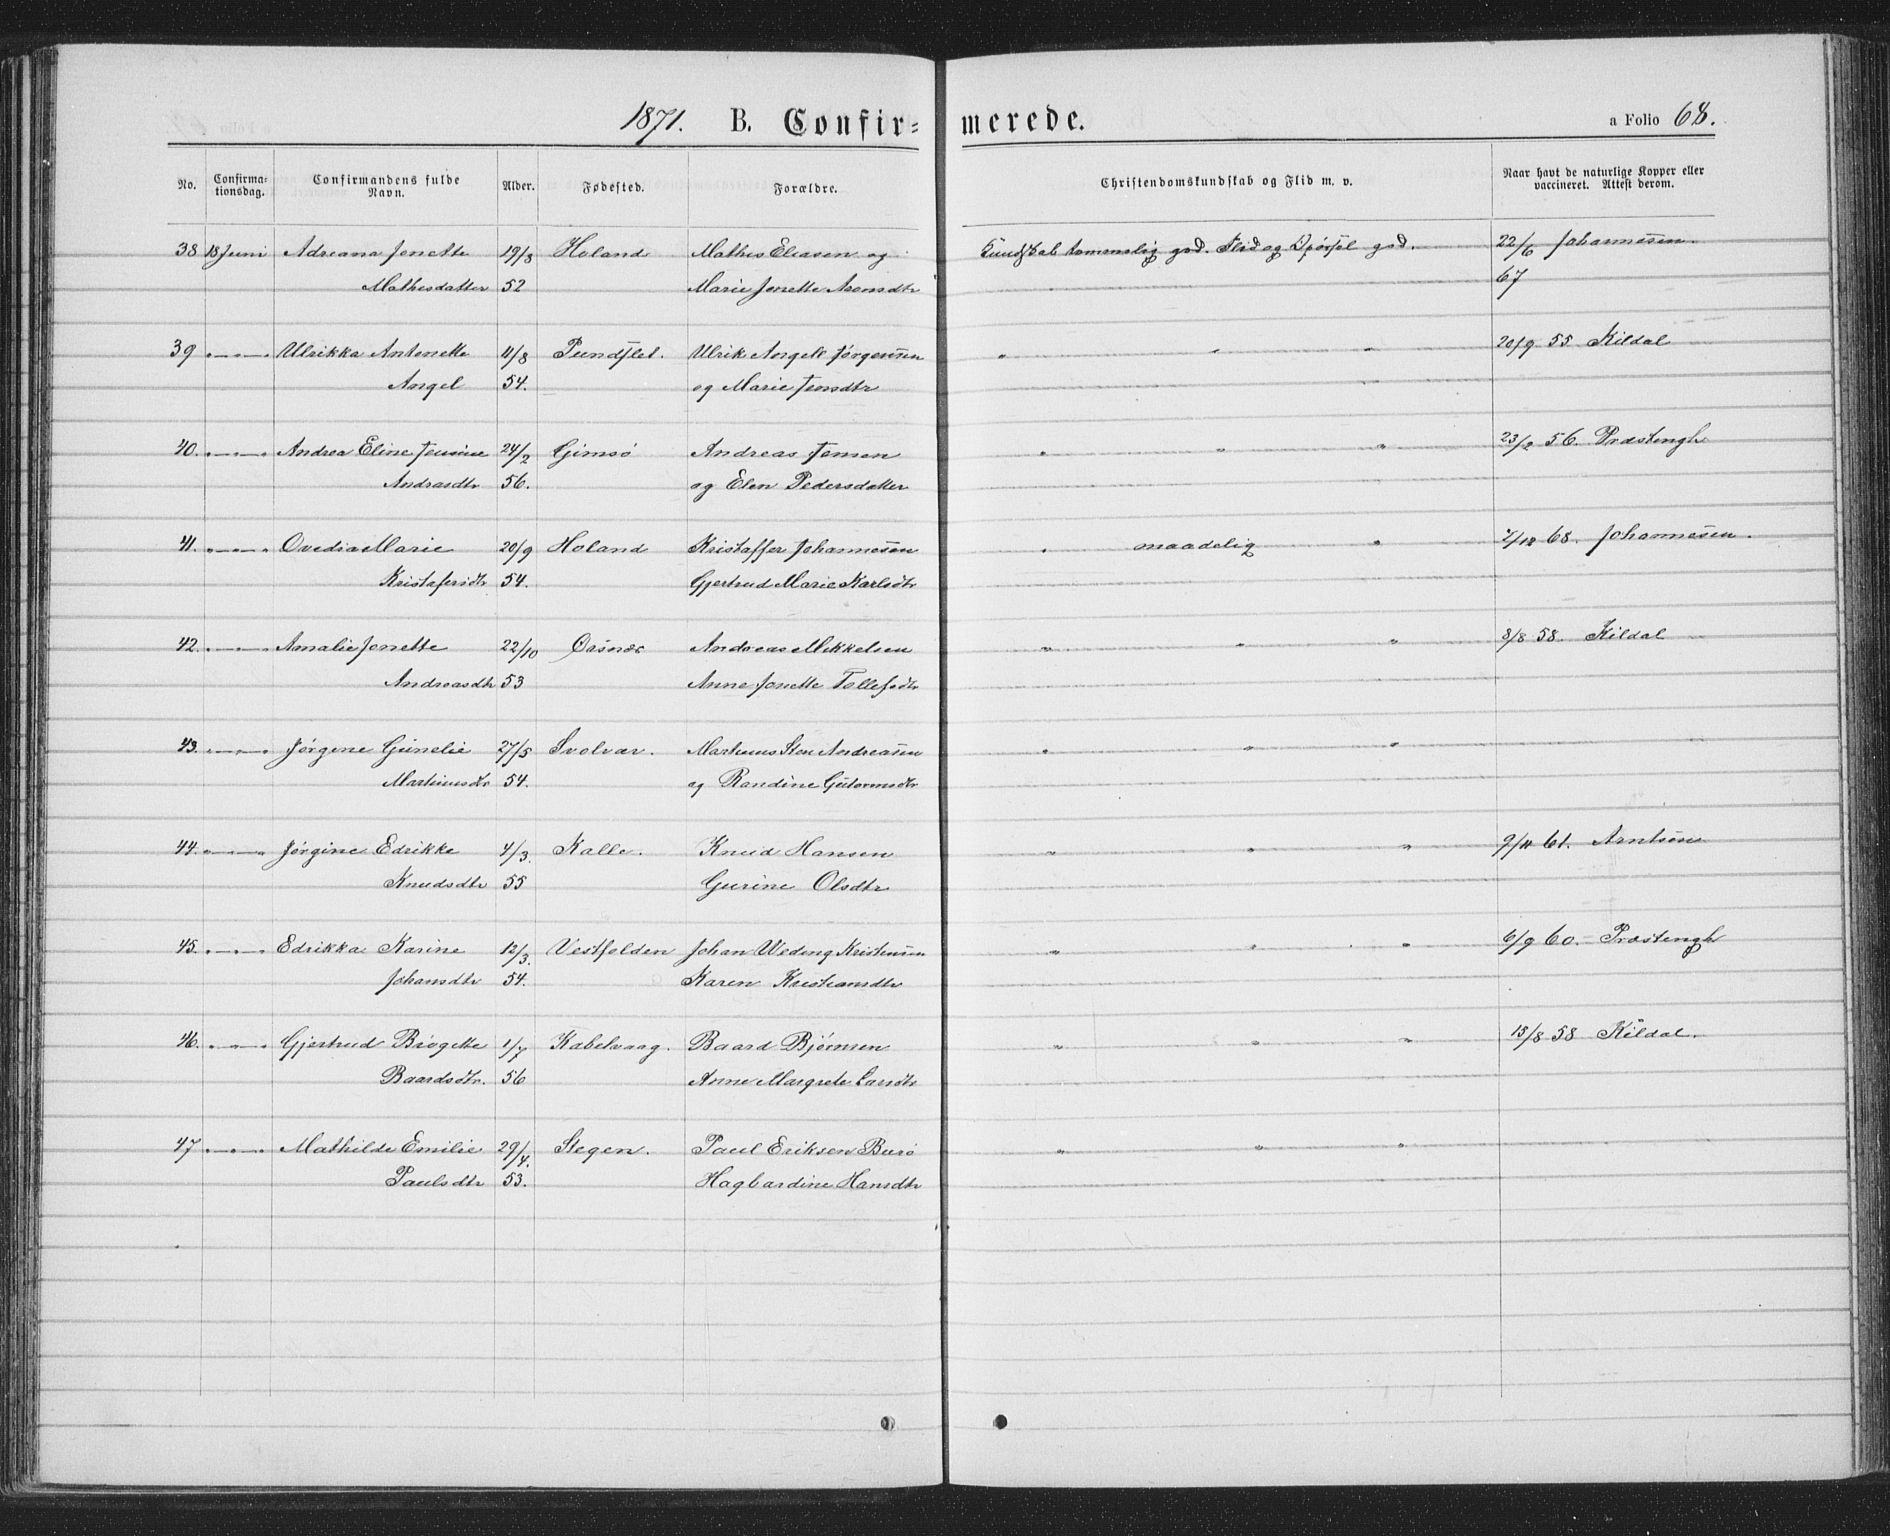 1871. B. Confir= merede. a Folio 68.
No. Confirma-tionsdag. Confirmandens fulde Navn. Alder. Fødested. Forældre. Christendomskundskab og Flid m. v. Naar havt de naturlige Kopper eller vaccineret. Attest derom.
38 18 Juni Adreana Jonette 19/8 Holand Mathis Eliasen og Kundskab temmelig god. Flid og Opførsel god. 22/6 Johannesen.
Mathisdatter 52 Marie Jonette Aronsdtr 67
39 " " " Ulrikka Antonette 4/8 Pundslet. Ulrik Angell Jørgensen " " " 20/9 55 Kildal
Angel 54. og Marie Jensdtr
40. " " " Andrea Eline Jensine 24/2 Gimsö Andreas Jensen " " " 23/2 56. Præstengh
Andrasdtr 56. og Elen Pedersdatter
41. " " " Ovedia Marie 20/9 Holand Kristaffer Johannesen " maadelig " 2/12 68. Johannesen.
Kristafersdtr 54. Gjertrud Marie Karlsdtr
42. " " " Amalie Jonette 22/10 Orsnæs Andreas Mikkelsen " " " 8/8 58. Kildal
Andreasdtr 53 Anne Jonette Tollefsdtr
43. " " " Jørgine Gunelie 27/5 Svolvær. Martinus Sten Andreasen " " "
Martinusdtr 54. og Randine Gutormsdtr
44. " " " Jørgine Edrikke 4/3. Kalle. Knud Hansen " " " 9/11 61. Arntsen
Knudsdtr 55 Gurine Olsdtr
45. " " " Edrikka Karine 12/3. Vestfolden Johan Weding Kristensen " " " 6/9 60. Præstengh
Johansdtr 54. Karen Kristiansdtr
46. " " " Gjertrud Birgette 1/7 Kabelvaag. Baard Bjørnsen " " " 15/8 58 Kildal.
Baardsdtr. 56 Anne Margrete Larsdtr
47 " " " Mathilde Emilie 29/4. Stegen. Paul Eriksen Burø " " "
Paulsdtr 53. Hagbardine Hansdtr